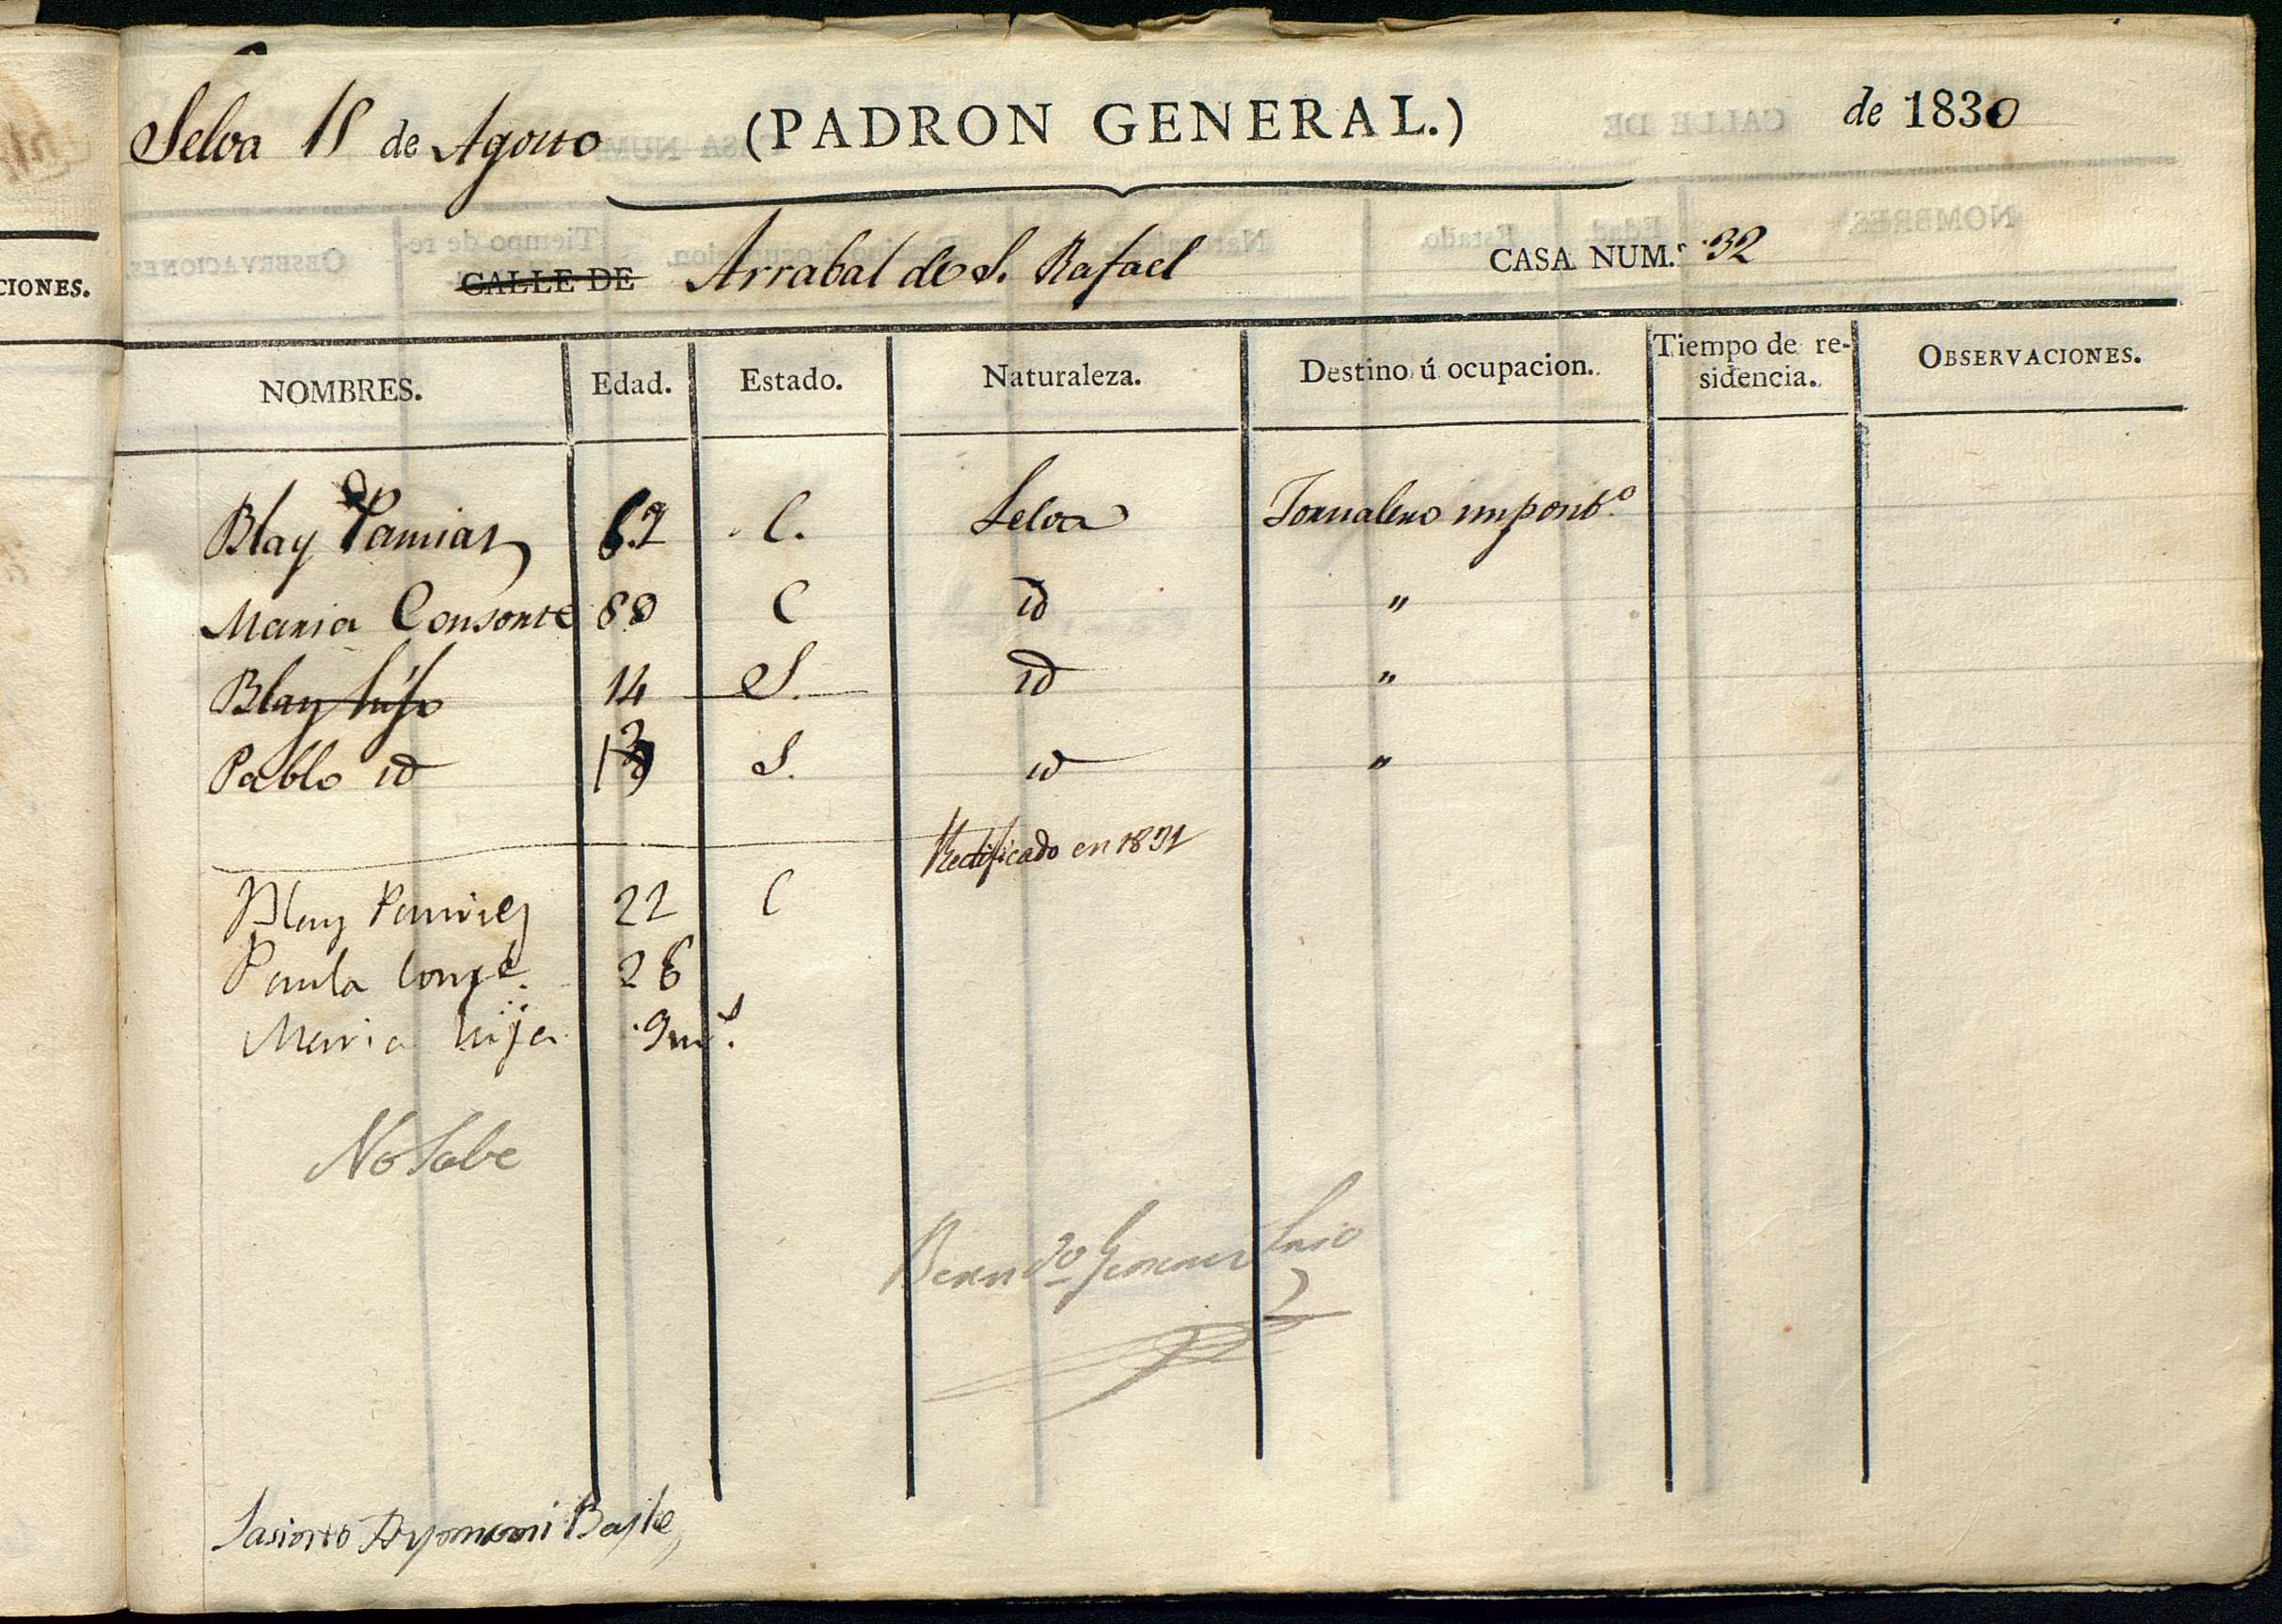 CIONES.
Selva 18 de Agosto (PADRON GENERAL.) de 1830
CALLE DE Arrabal de S. Rafael CASA NUM.º 32
NOMBRES. Edad. Estado. Naturaleza. Destino ú ocupacion. Tiempo de re-
sidencia. OBSERVACIONES.
Blay Pamias 62 C. Selva Jornalero
Maria Consorte C id "
Blay hijo 14 S. id "
Pablo id S. id "
Rectificado en 1831
Blay Pamies 22 C
Paula Conse. 26
Maria hija 9 ms.
No Sabe